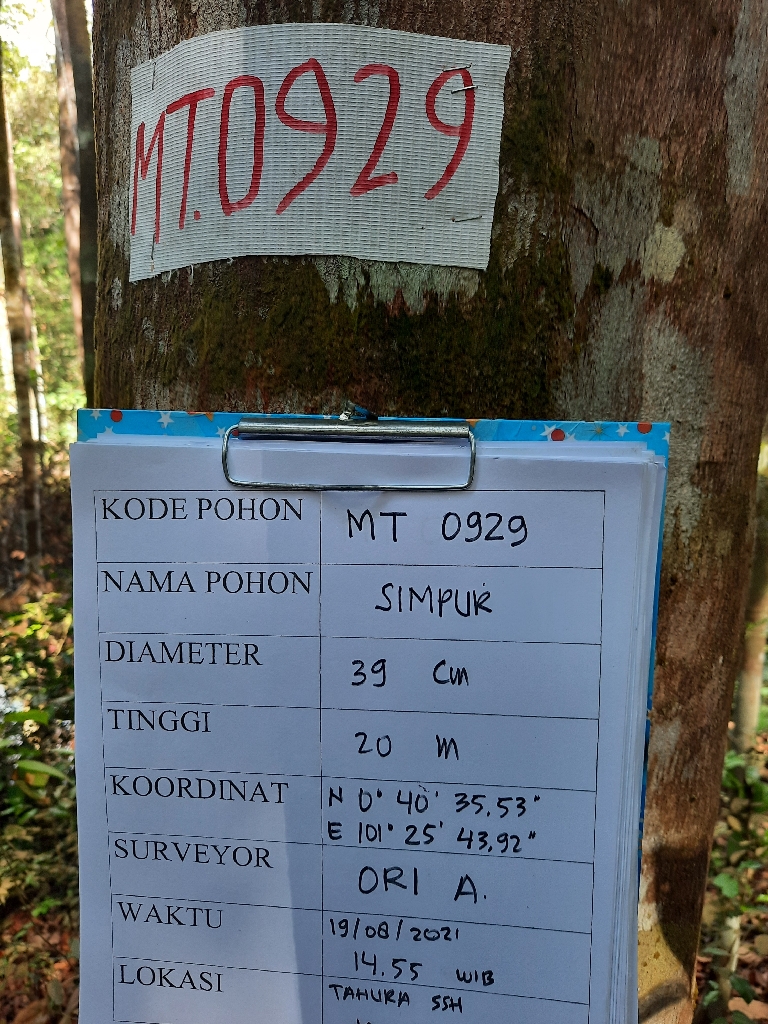 MT.0929
KODE POHON MT 0929
NAMA POHON SIMPUR
DIAMETER 39 Cm
TINGGI 20 m
KOORDINAT N 0° 40' 35,53"
E 101° 25' 43,92"
SURVEYOR ORI A.
WAKTU 19/08/2021
14.55 WIB
LOKASI TAHURA SSH